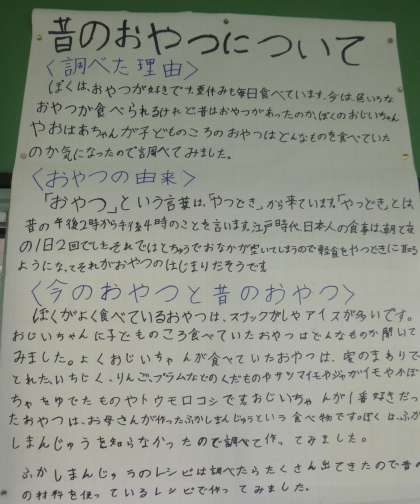 昔のおやつについて
〈調べた理由〉
ぼくは、おやつが好きです。夏休みも毎日食べています。今は、色いろな
おやつが食べられるけれど昔はおやつがあったのか、ぼくのおじいちゃん
やおばあちゃんが子どものころのおやつはどんなものを食べていた
のか気になったので調べてみました。
〈おやつの由来〉
「おやつ」という言葉は、「やつどき」から来ています。「やつどき」とは、
昔の午後2時から午後4時のことを言います。江戸時代、日本人の食事は、朝と夜
の1日2回でした。それではとちゅうでおなかが空いてしまうので軽食をやつどきに取る
ようになってそれがおやつのはじまりだそうです
〈今のおやつと昔のおやつ〉
ぼくがよく食べているおやつは、スナックがしやアイスが多いです。
おじいちゃんに子どものころ食べていたおやつはどんなものか聞いて
みました。よくおじいちゃんが食べていたおやつは、家のまわりで
とれた、いちじく、りんご、プラムなどのくだものやサツマイモやジャガイモやかぼ
ちゃをゆでたものやトウモロコシですおじいちゃんが1番好きだっ
たおやつは、お母さんが作ったふかしまんじゅうという食べ物です。ぼくは、ふか
しまんじゅうを知らなかったので調べて作ってみました。
ふかしまんじゅうのレシピは調べたらたくさん出てきたので昔の
の材料を使っているレシピで作ってみました。